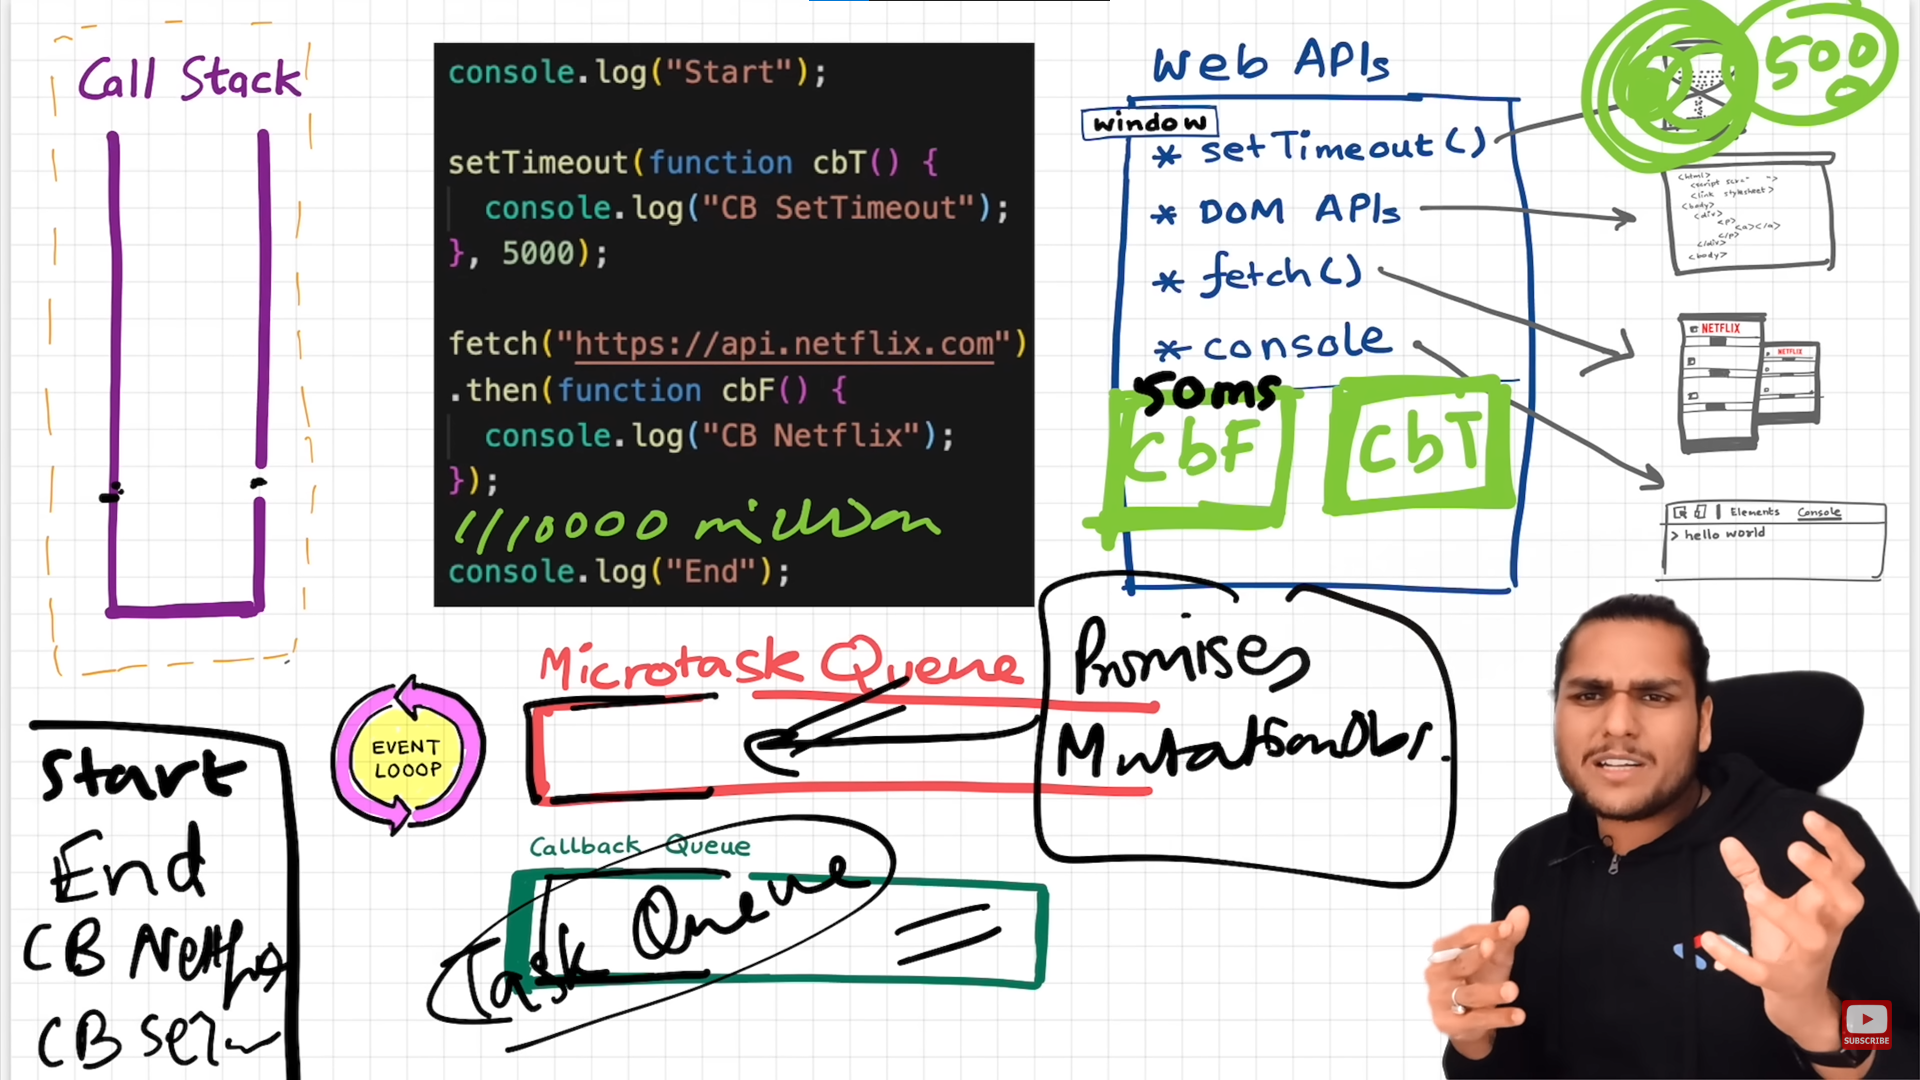 Call Stack
console.log("Start");
setTimeout(function cbT() {
console.log("CB SetTimeout");
}, 5000);
fetch("https://api.netflix.com")
.then(function cbF() {
console.log("CB Netflix");
});
10000 million
console.log("End");
Web APIs
window
* setTimeout()
* DOM APIs
* fetch()
* console
50ms
CbF
CbT
5000
<html>
<link stylesheet>
<body>
<div>
<p>
<a></a>
</p>
</div>
<body>
NETFLIX
NETFLIX
Elements Console
> hello world
Microtask Queue
Promises
MutationObs.
EVENT
LOOOP
Callback Queue
Task Queue
Start
End
CB Netflix
CB Set
SUBSCRIBE